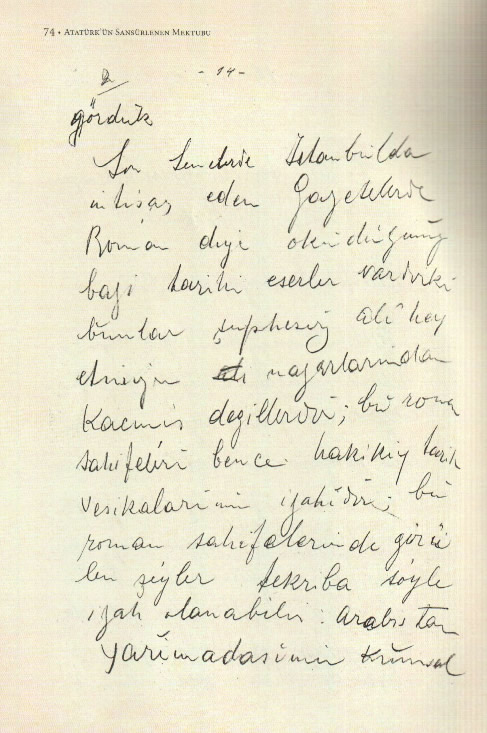 74 • Atatürk'ün Sansürlenen Mektubu
2
- 14 -
gördük
Son senelerde İstanbulda
intişar eden gazetelerde
Roman diye okuduğunuz
bazi tarihi eserler vardırki
bunlar şüphesiz ali hey
etinizin nazarlarından
Kaçmış değillerdir; bu roman
sahifeleri bence hakikiy tarih
vesikalarinin izahidir; bu
roman sahifelerinde görü
len şeyler tekriba şöyle
izah olanabilir: arabistan
Yarimadasinin kumsal